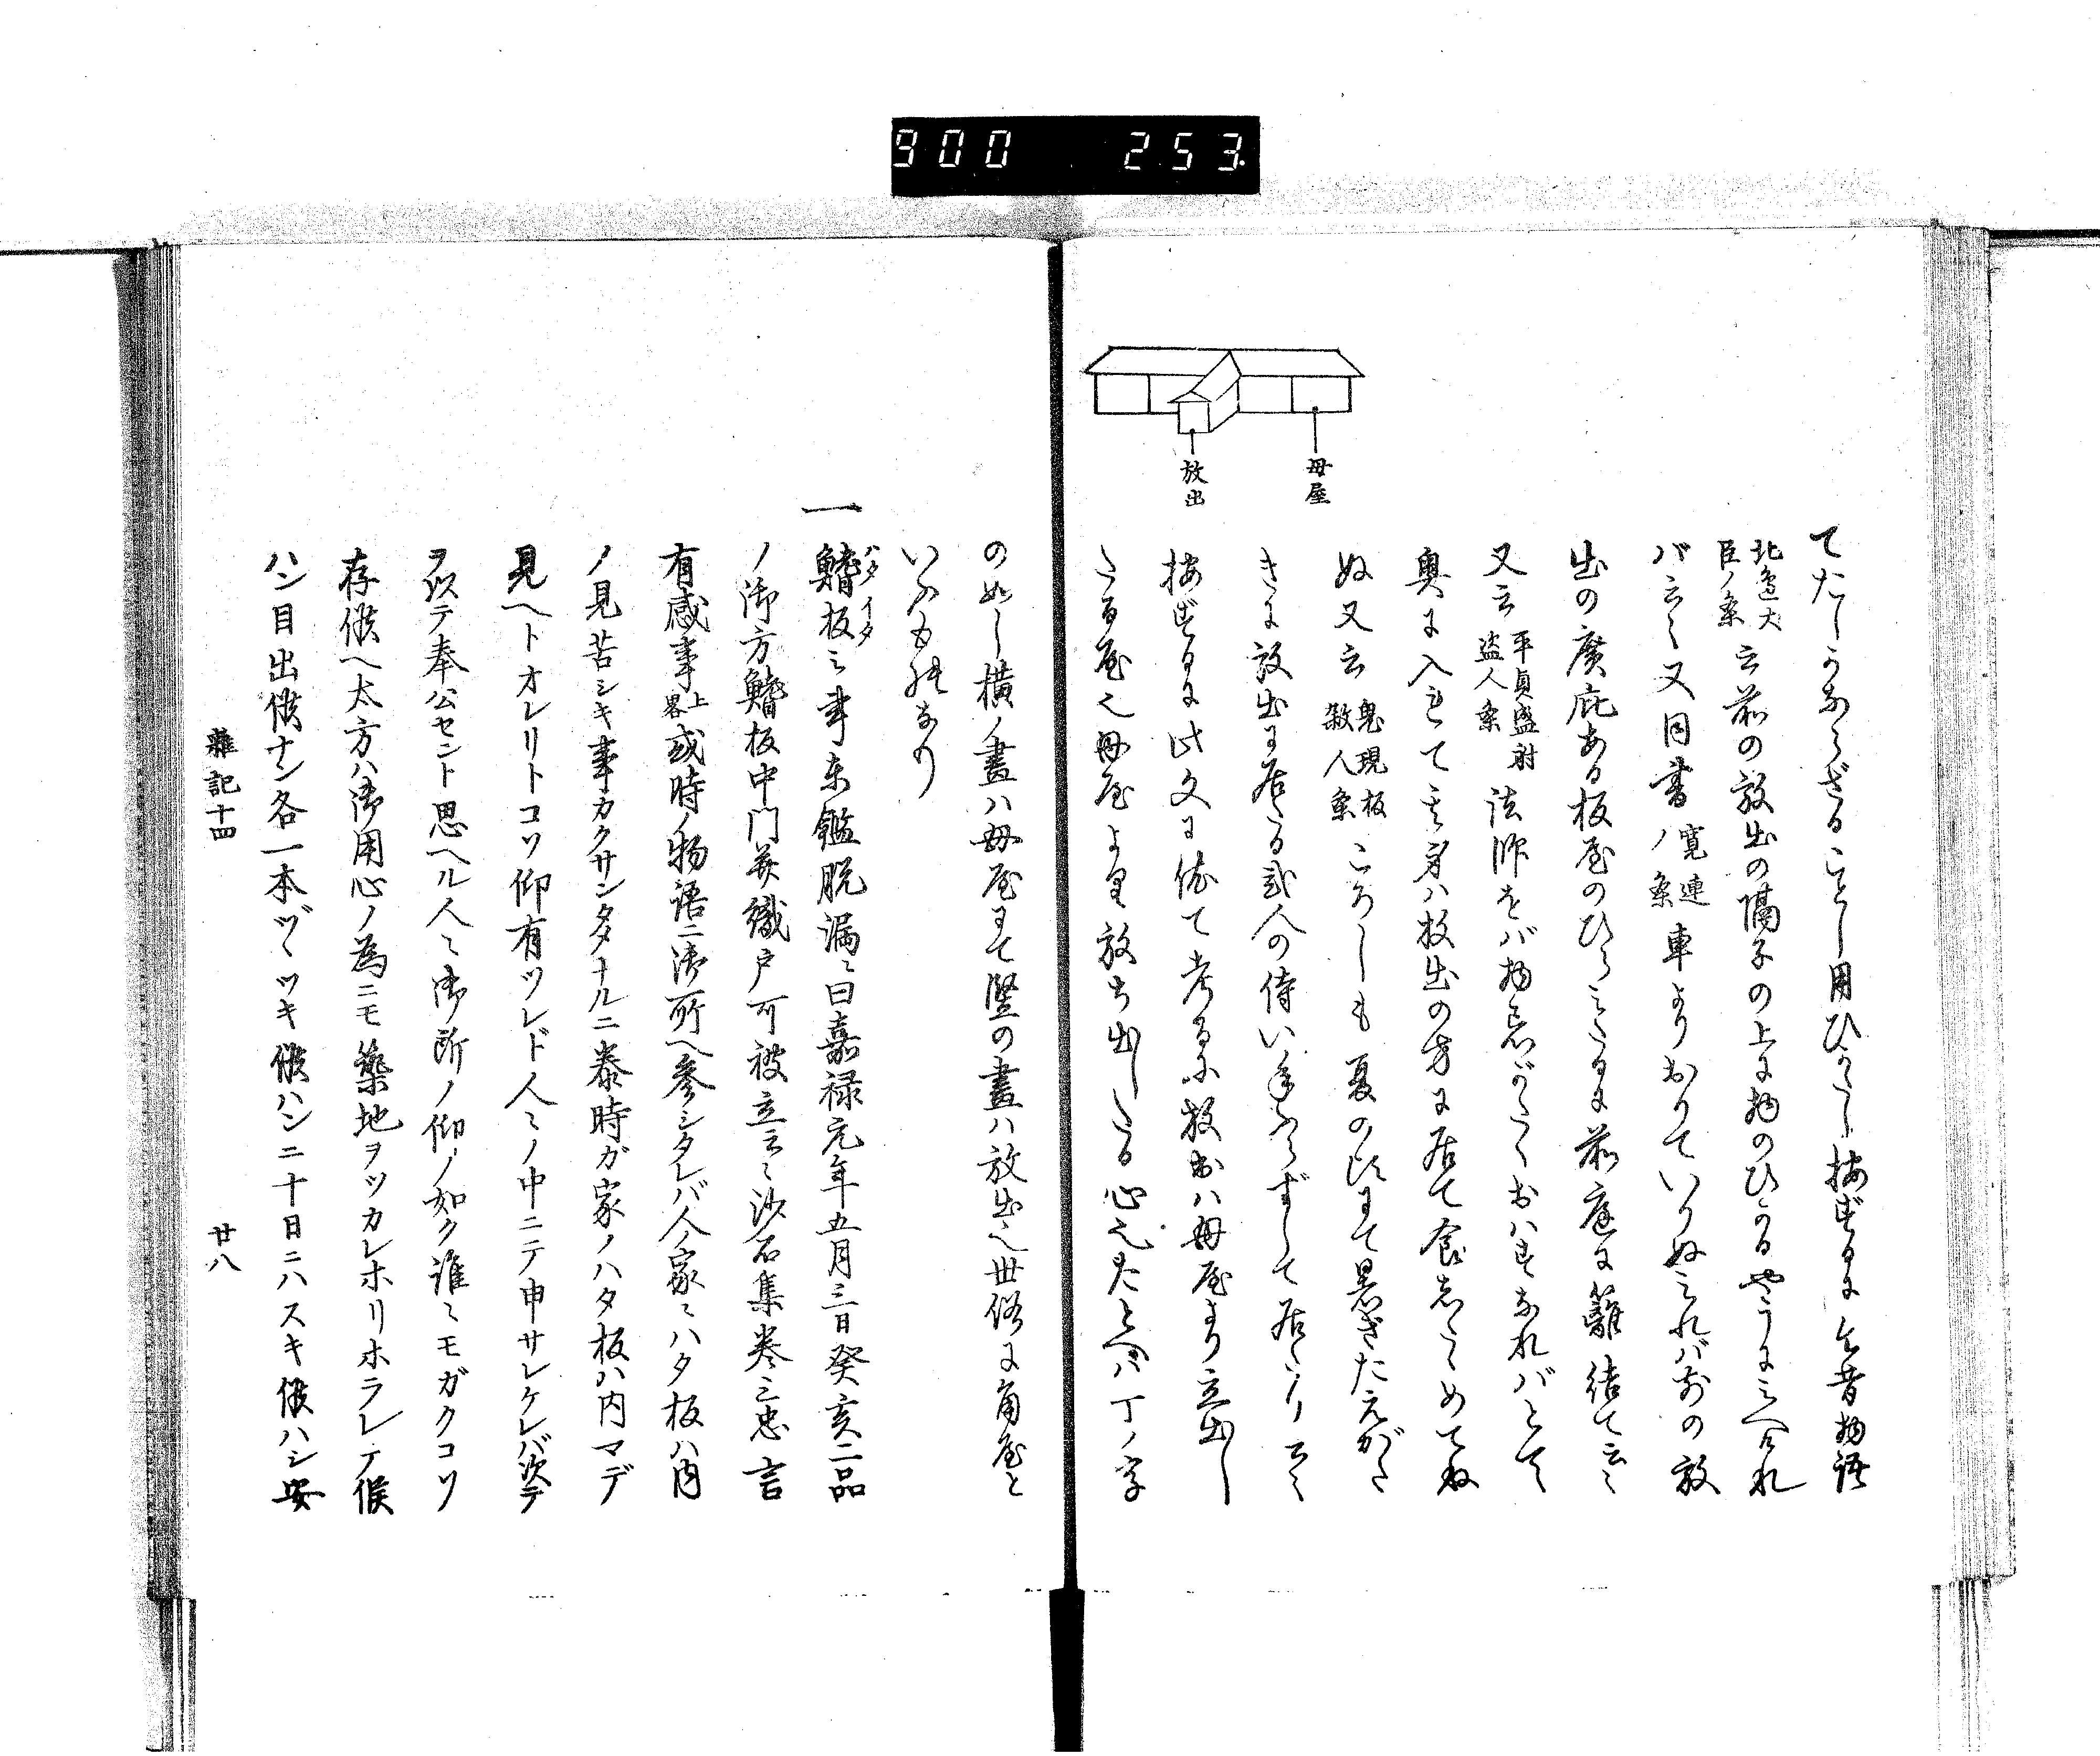 900 253
母屋
放出
てたしかあらざることし用ひがたし按ずるに今昔物語
北邊大臣ノ条云前の放出の隔子の上に物のひかるやうにみへけれ
バ云々又同書寛連ノ条車よりおりていりぬみれバおの放
出の廣庇ある板屋のひらみたるに前庭に籬結て云々
又云平貞盛射盗人条法師をバ物忌がたくおハすなれバとて
奥に入れて我身ハ放出の方に居て食したゝめてね
ぬ又云鬼現板殺人条ころしも夏の比にて暑さたえがた
きに放出に居たる二人の侍いねずして居たり云々
按ずるに此文に依て考るに放出ハ母屋より立出し
たる屋也母屋より放ち出したる心也たとへバ丁ノ字
のめし横ノ畫ハ母屋にて竪の畫ハ放出也世俗に角屋と
いふものなり
一 鰭板之事東鑑脱漏ニ曰嘉禄元年五月三日癸亥二品
ハタイタ
ノ御方鰭板中門并織戸可被立云々沙石集巻三忠言
有感事上畧或時ノ物語ニ御所ヘ参シタレバ人ノ家々ハタ板ハ内
ノ見苦シキ事カクサンタメナルニ泰時ガ家ノハタ板ハ内マデ
見ヘトオレリトコソ仰有ツレド人々ノ中ニテ申サレケレバ次テ
ヲ以テ奉公セント思ヘル人々御所ノ仰ノ如ク誰々モガクコソ
存候ヘ太方ハ御用心ノ為ニモ築地ヲツカレホリホラレテ候
ハン目出候ナン各一本ヅヽツキ候ハン二十日ニハスキ候ハシ安
雜記十四
廿八